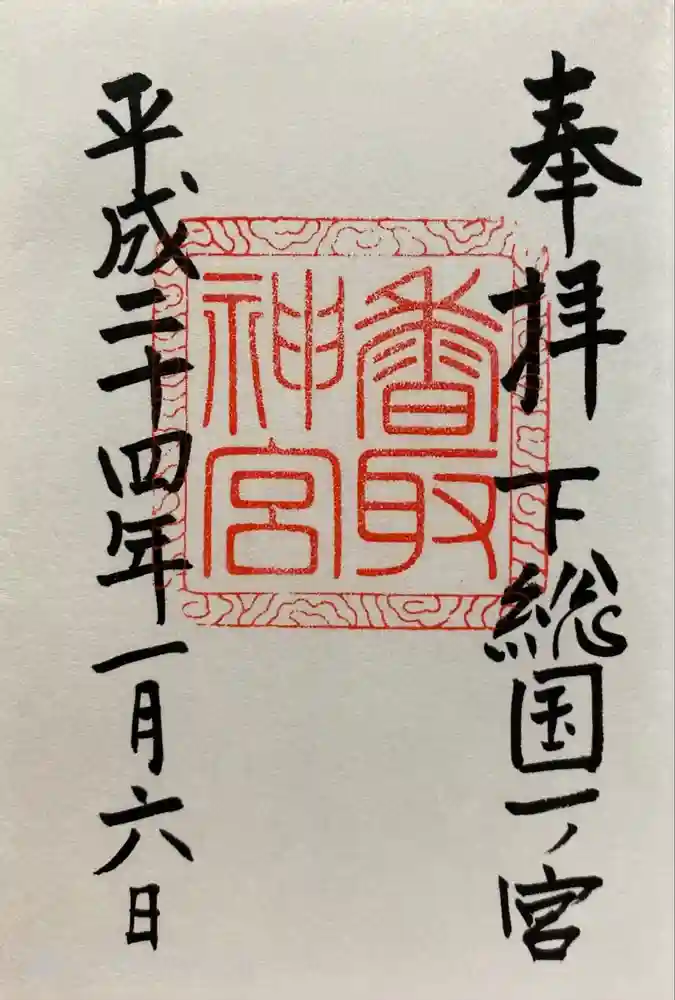 奉拝 下総国一ノ宮
香取
神宮
平成二十四年一月六日